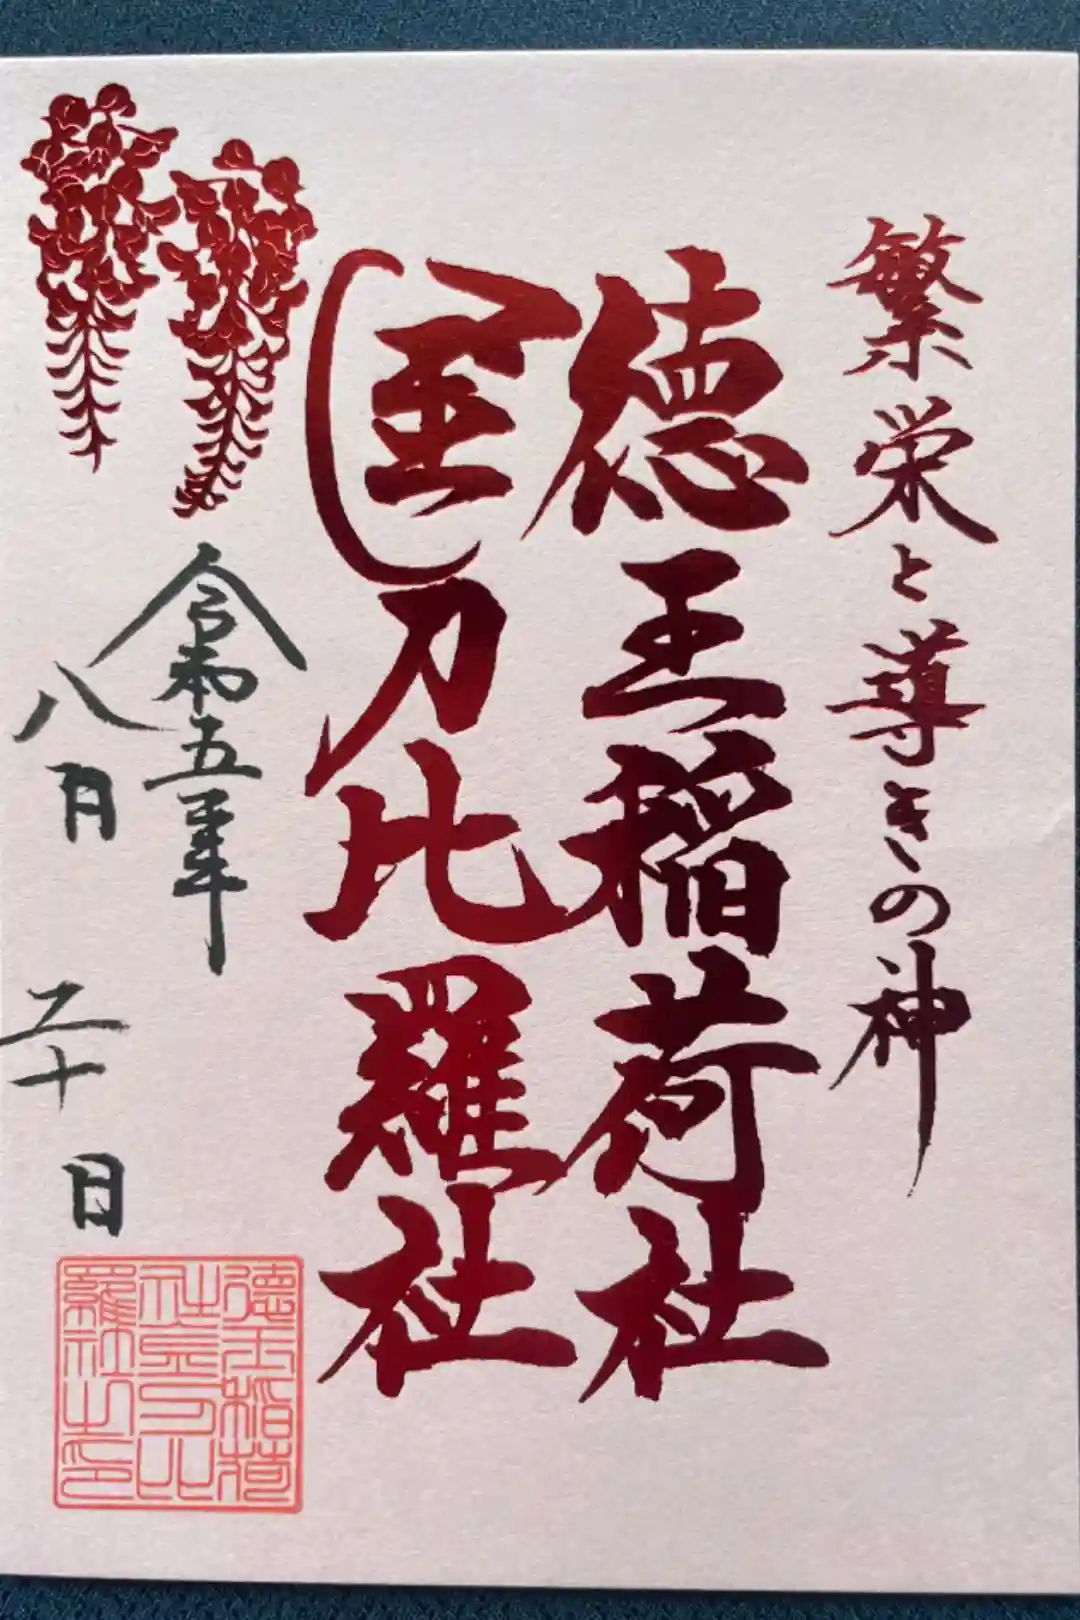 繁栄と導きの神
徳王稲荷社
金刀比羅社
令和五年
八月二十日
徳王稲荷
社金刀比
羅社之印